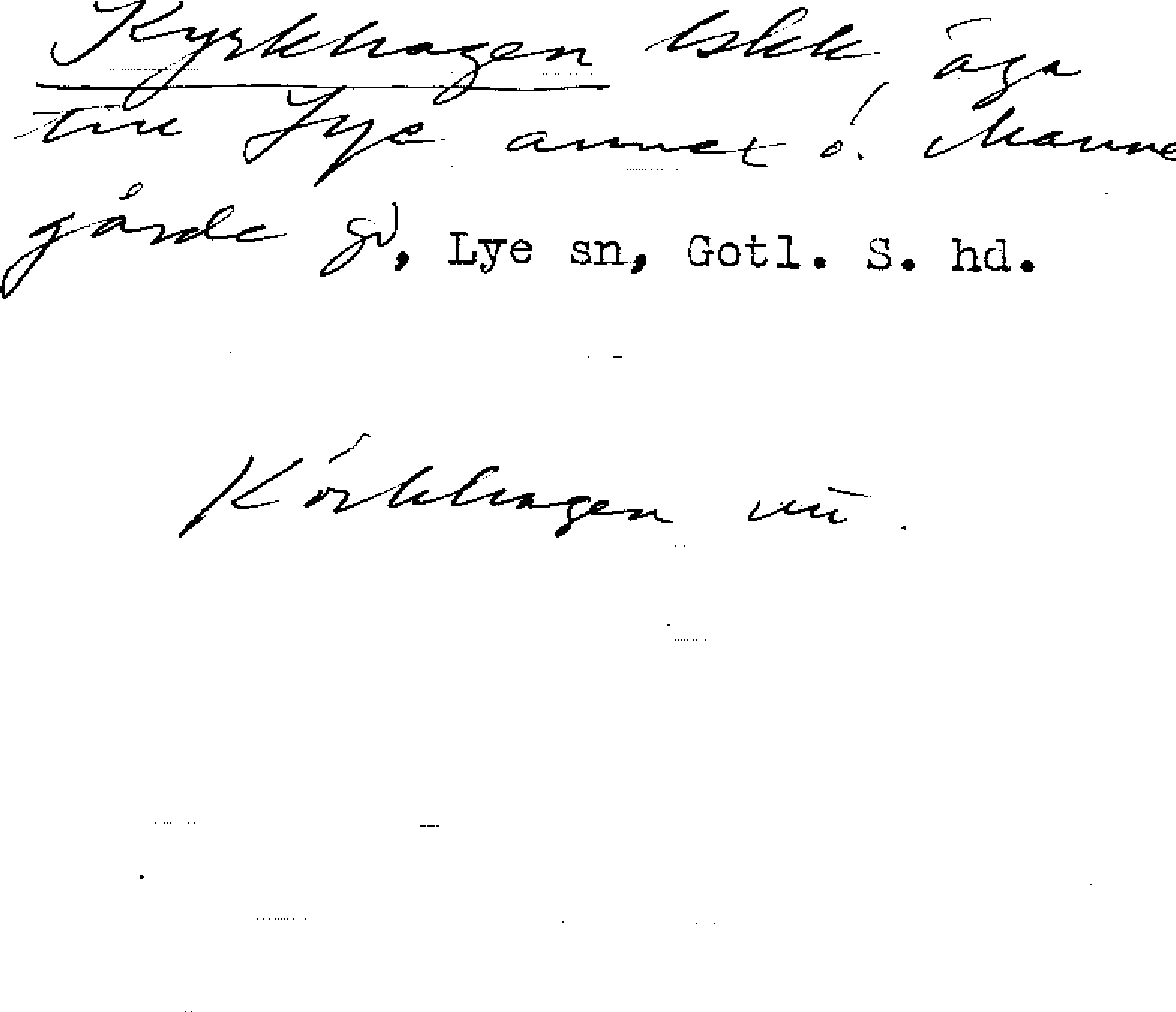 Kyrkhagen bskk, äga
till Lye annex o. Manne
gårde gd, Lye sn, Gotl. S. hd.
Körkhagen